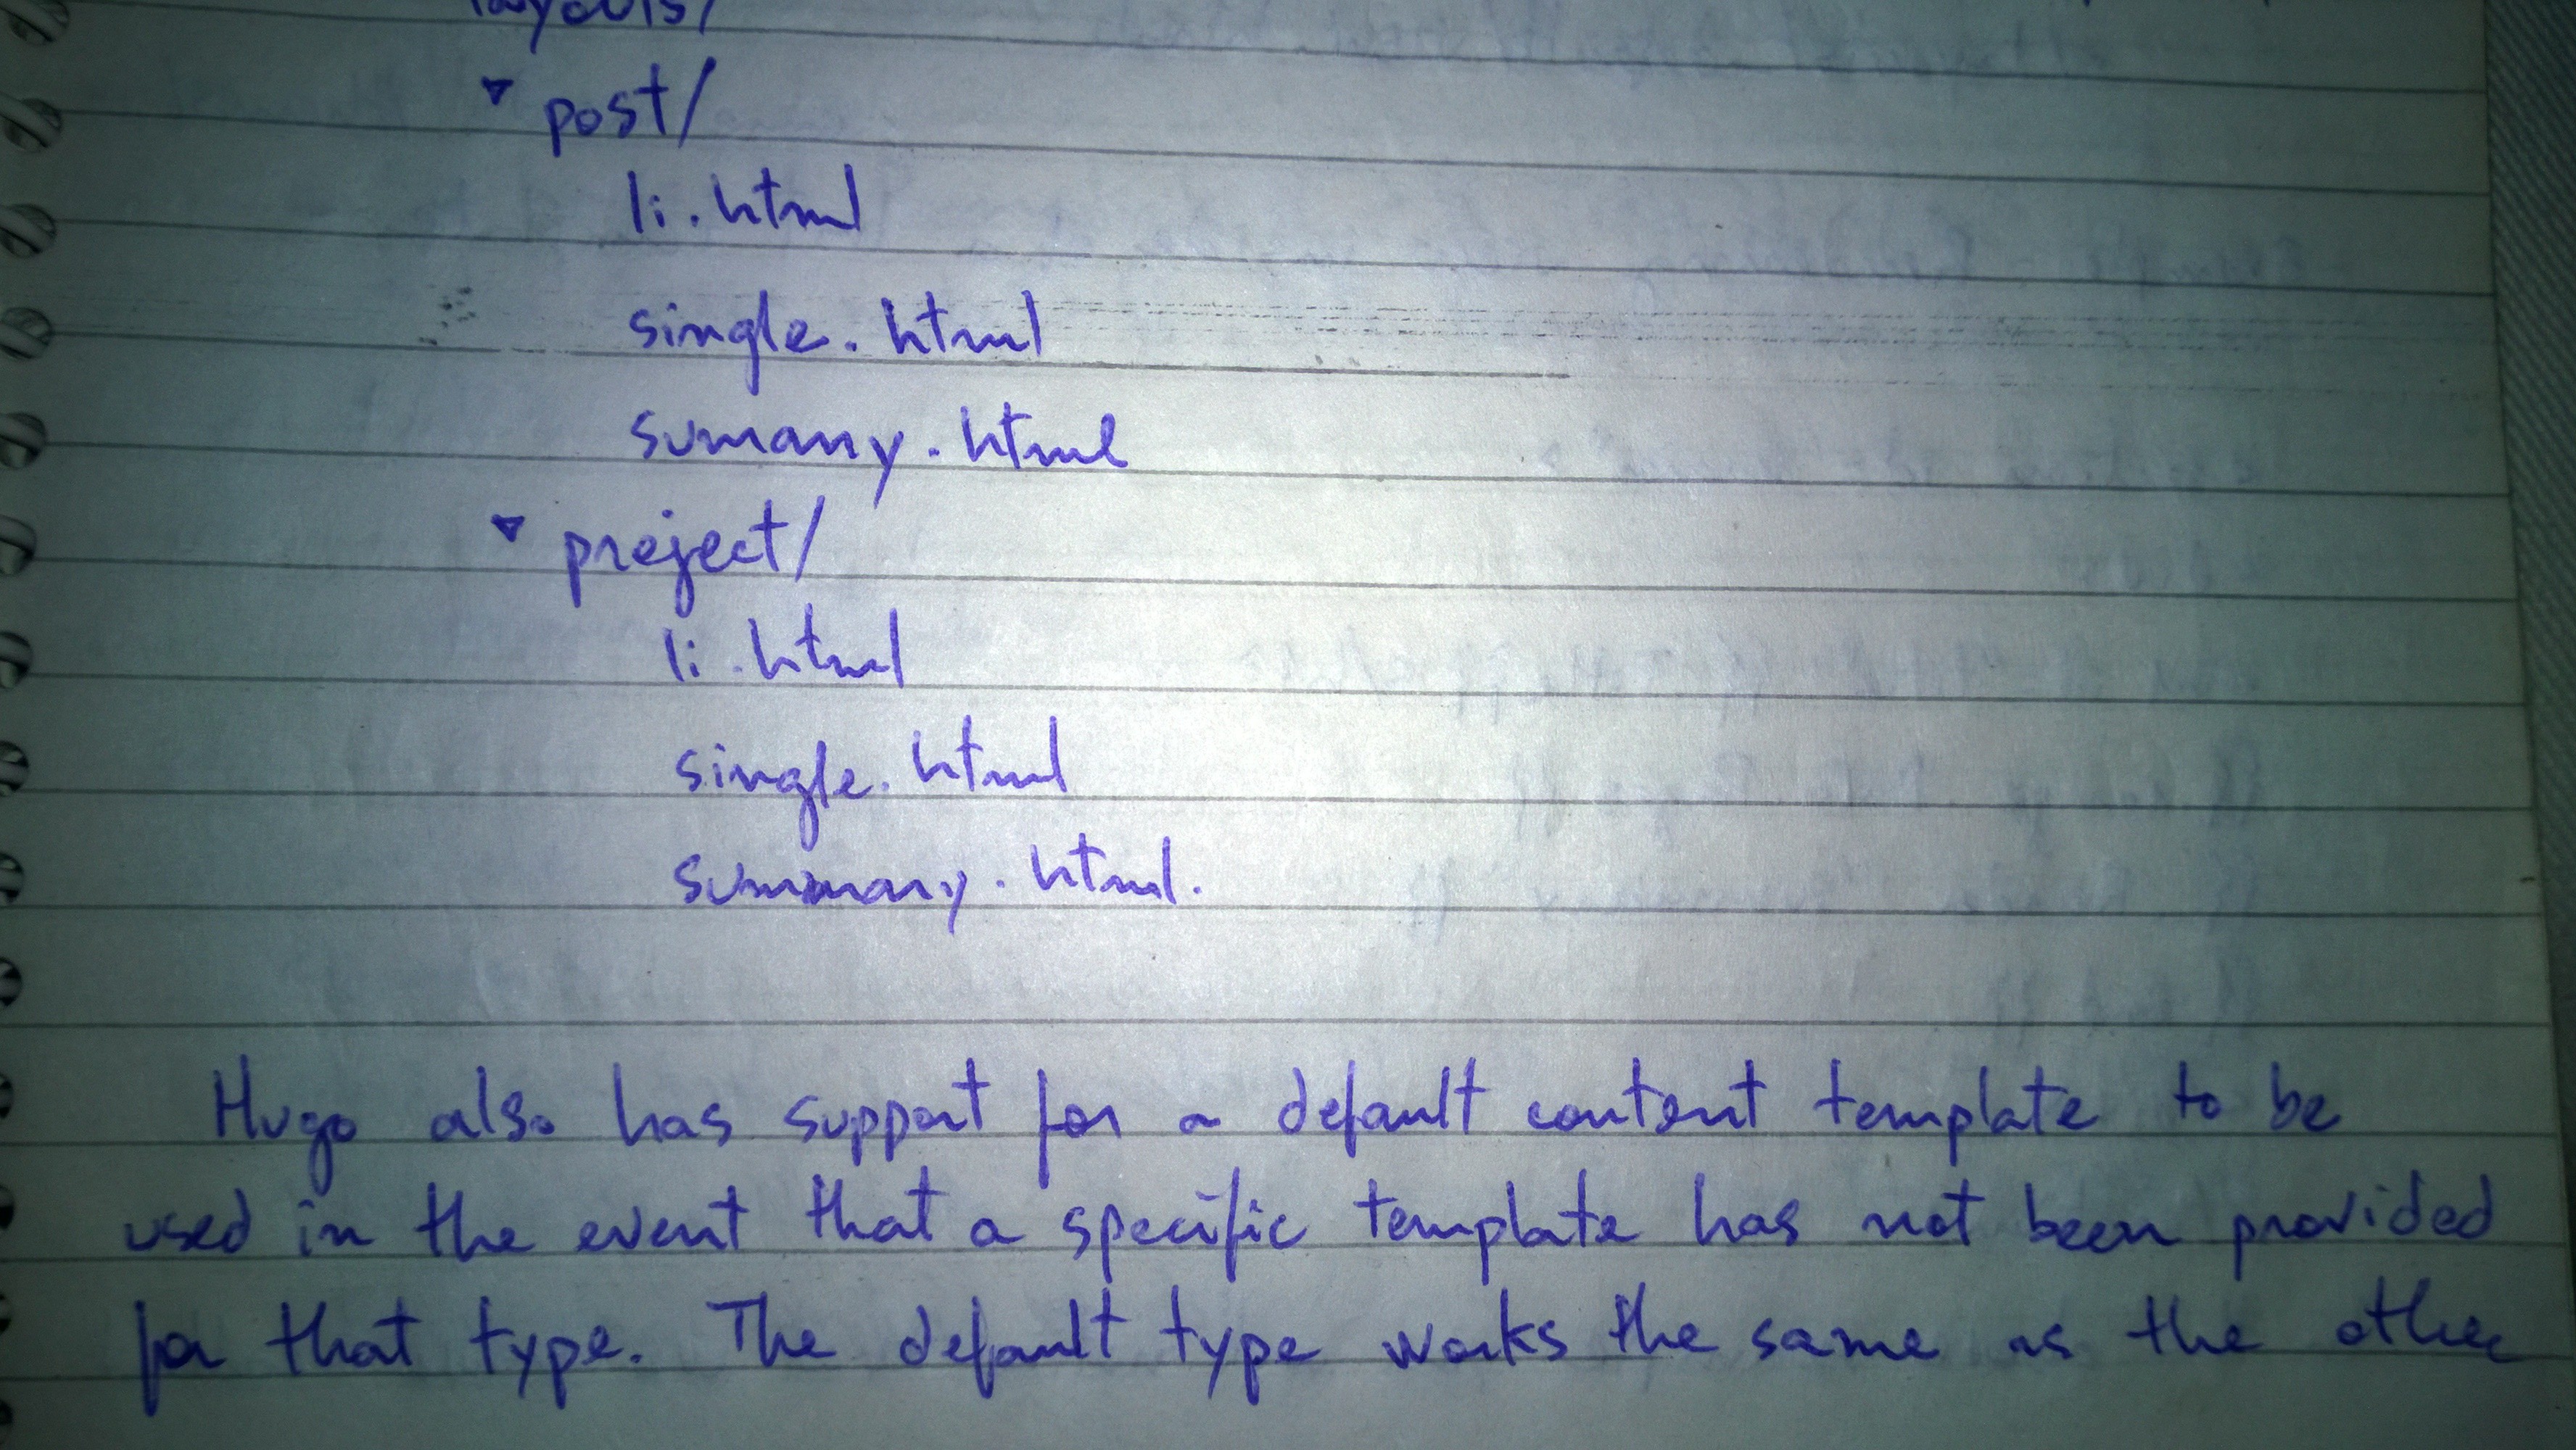 layouts/
▾ post/
li.html
single.html
summary.html
▾ project/
li.html
single.html
summary.html.
Hugo also has support for a default content template to be
used in the event that a specific template has not been provided
for that type. The default type works the same as the other